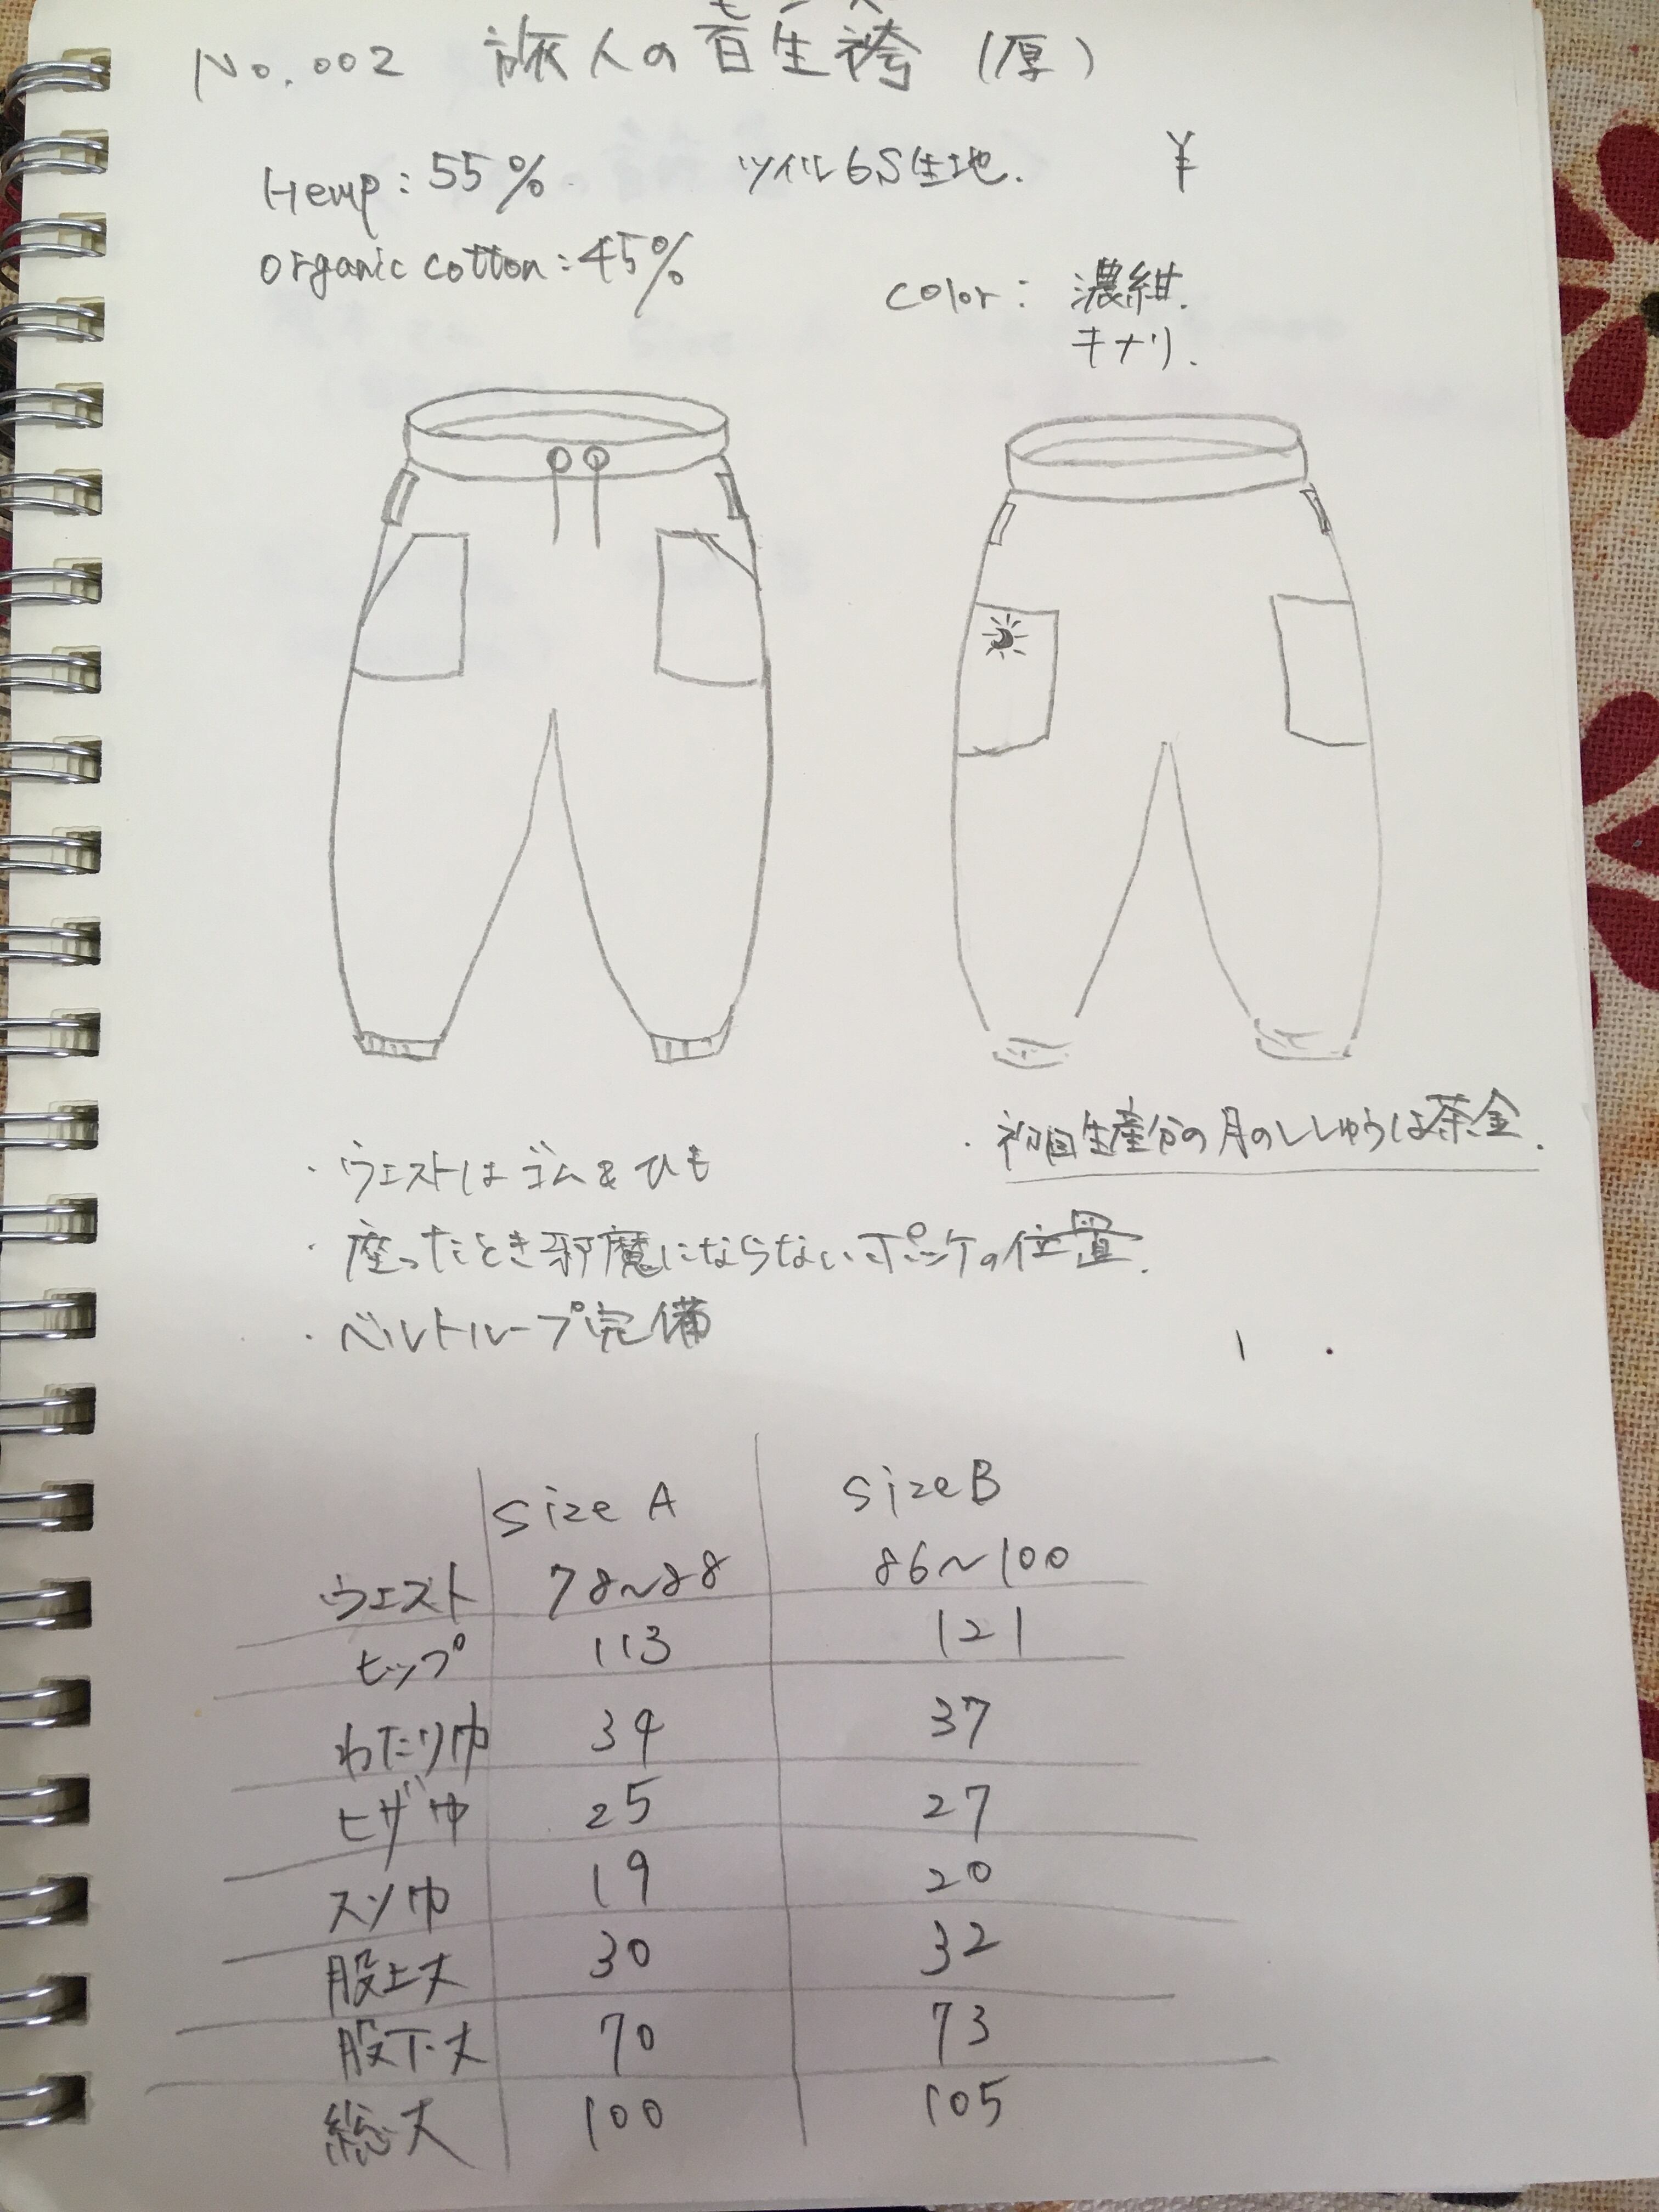 No.002 旅人の百生袴 (厚)
Hemp:55% ツイル6S生地. ¥
organic cotton:45%
color: 濃紺.
キナリ.
・初回生産分の月のししゅうは茶金.
・ウエストはゴム&ひも
・座ったとき邪魔にならないポッケの位置.
・ベルトループ完備
size A size B
ウエスト 78~88 86~100
ヒップ 113 121
わたり巾 34 37
ヒザ巾 25 27
スソ巾 19 20
股上丈 30 32
股下丈 70 73
総丈 100 105